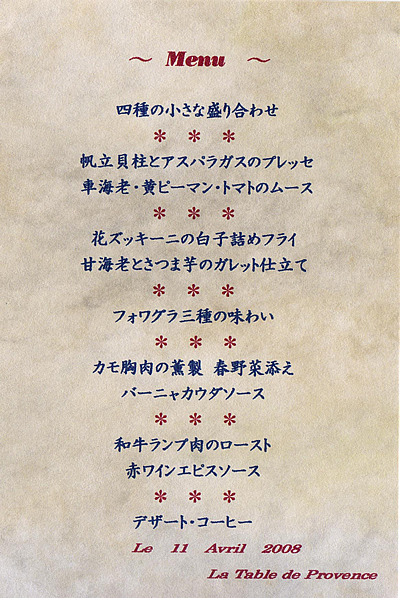 ～ Menu ～
四種の小さな盛り合わせ
＊ ＊ ＊
帆立貝柱とアスパラガスのプレッセ
車海老・黄ピーマン・トマトのムース
＊ ＊ ＊
花ズッキーニの白子詰めフライ
甘海老とさつま芋のガレット仕立て
＊ ＊ ＊
フォワグラ三種の味わい
＊ ＊ ＊
カモ胸肉の薫製 春野菜添え
バーニャカウダソース
＊ ＊ ＊
和牛ランプ肉のロースト
赤ワインエピスソース
＊ ＊ ＊
デザート・コーヒー
Le 11 Avril 2008
La Table de Provence